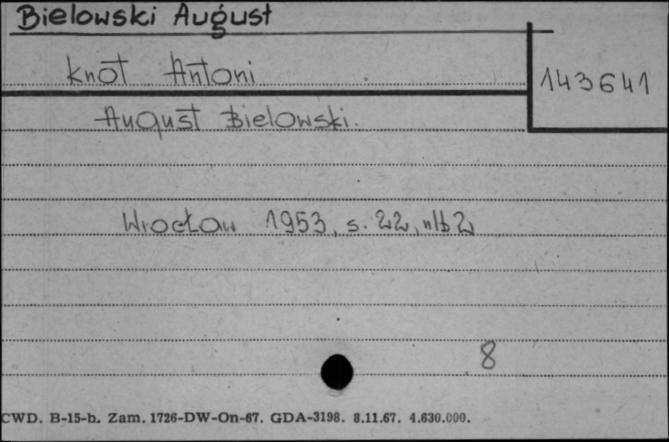 Bielowski August
Knot Antoni
143641
August Bielowski.
Wrocław 1953, s. 22, nlb 2
8
CWD. B-15-b. Zam. 1726-DW-On-67. GDA-3198. 8.11.67. 4.630.000.